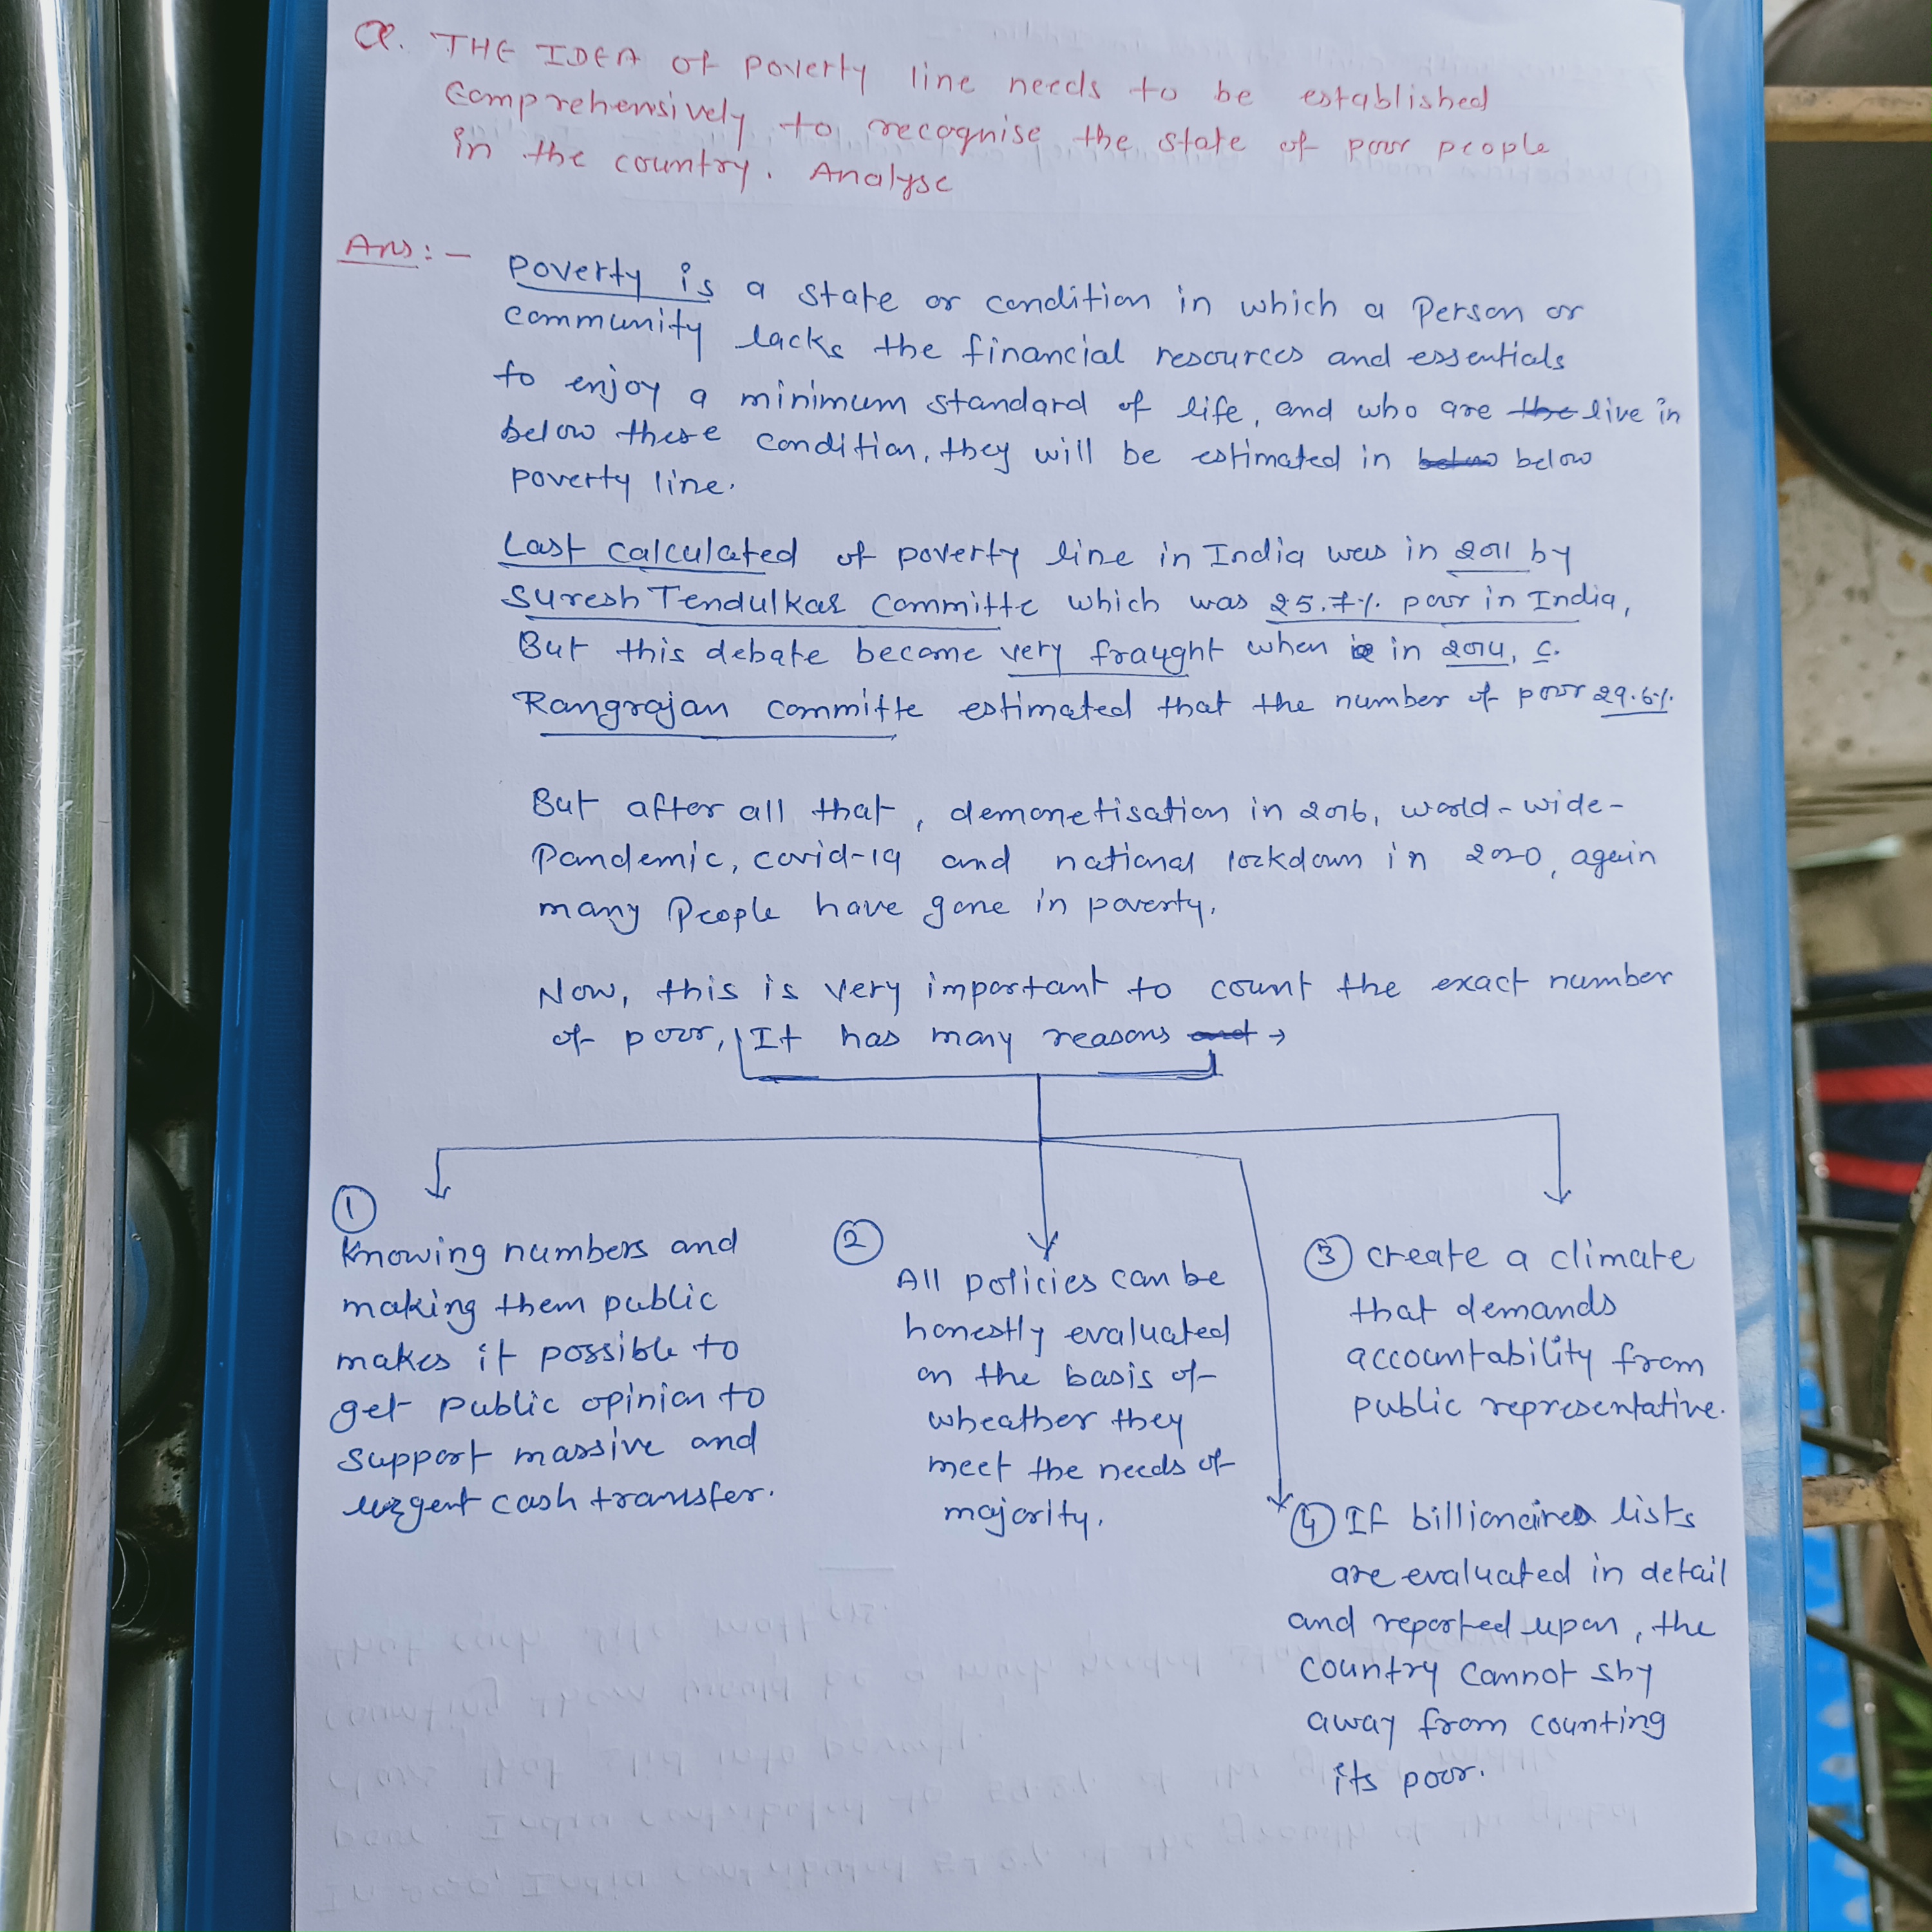 Q. THE IDEA of poverty line needs to be established
comprehensively to recognise the state of poor people
in the country. Analyse
Ans:- poverty is a state or condition in which a Person or
community lacks the financial resources and essentials
to enjoy a minimum standard of life, and who are the live in
below these condition, they will be estimated in below
poverty line.
Last calculated of poverty line in India was in 2011 by
Suresh Tendulkar Committe which was 25.7% poor in India,
But this debate become very fraught when in 2014, C.
Rangrajan committe estimated that the number of poor 29.6%.
But after all that, demonetisation in 2016, world-wide-
Pandemic, covid-19 and national lockdown in 2020, again
many People have gone in poverty.
Now, this is very important to count the exact number
of poor, It has many reasons and →
①
Knowing numbers and
making them public
makes it possible to
get public opinion to
support massive and
urgent cash transfer.
②
All policies can be
honestly evaluated
on the basis of
wheather they
meet the needs of
majority.
③ create a climate
that demands
accountability from
public representative.
④ If billionaires lists
are evaluated in detail
and reported upon, the
country cannot shy
away from counting
its poor.